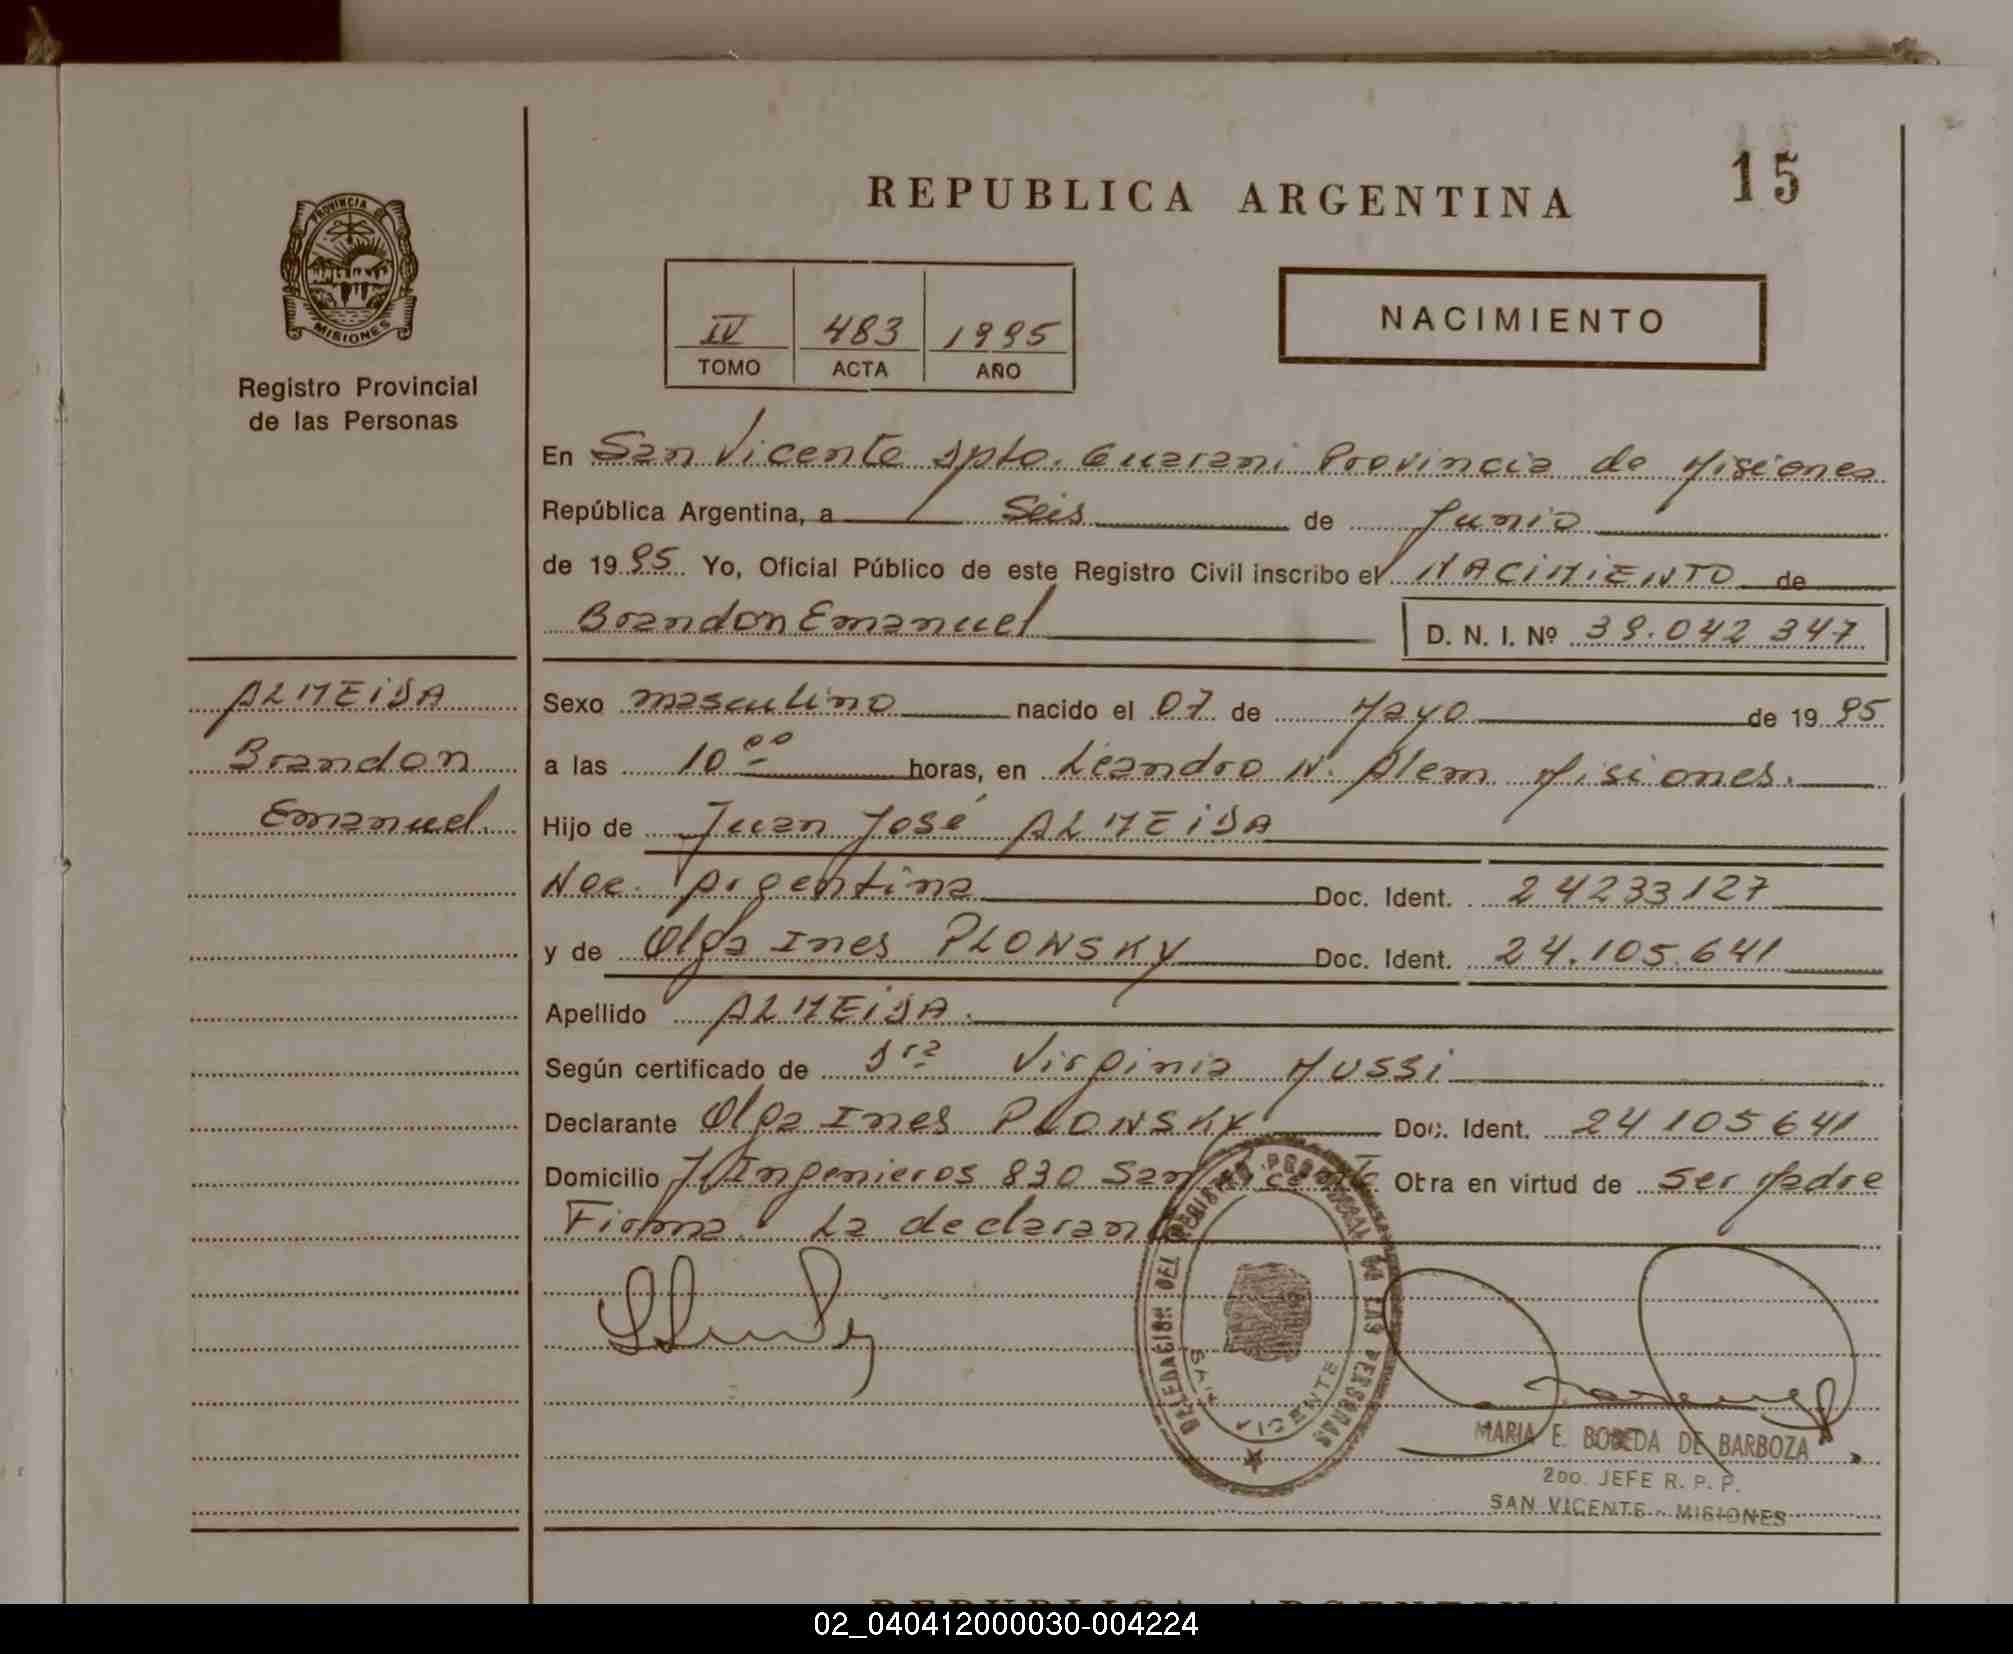 15
REPUBLICA ARGENTINA
PROVINCIA DE
MISIONES
Registro Provincial
de las Personas
IV 483 1995
TOMO ACTA AÑO
NACIMIENTO
En San Vicente Dpto. Guarani Provincia de Misiones
República Argentina, a Seis de Junio
de 1995 Yo, Oficial Público de este Registro Civil inscribo el NACIMIENTO de
Brandon Emanuel D. N. I. Nº 39.042 347
ALMEIDA
Brandon
Emanuel
Sexo masculino nacido el 07 de Mayo de 1995
a las 10 00 horas, en Leandro N. Alem Misiones.
Hijo de Juan José ALMEIDA
Nac. Argentina Doc. Ident. 24233127
y de Olga Ines PLONSKY Doc. Ident. 24.105.641
Apellido ALMEIDA.
Según certificado de Dra Virginia Mussi
Declarante Olga Ines PLONSKY Doc. Ident. 24105641
Domicilio J. Ingenieros 830 San Vicente Otra en virtud de ser Madre
Firma. La declarant
DELEGACION DEL REGISTRO PROVINCIAL DE LAS PERSONAS
SAN VICENTE
MARIA E. DE BARBOZA
2DO. JEFE R. P. P.
SAN VICENTE - MISIONES
REPUBLICA ARGENTINA
02_040412000030-004224